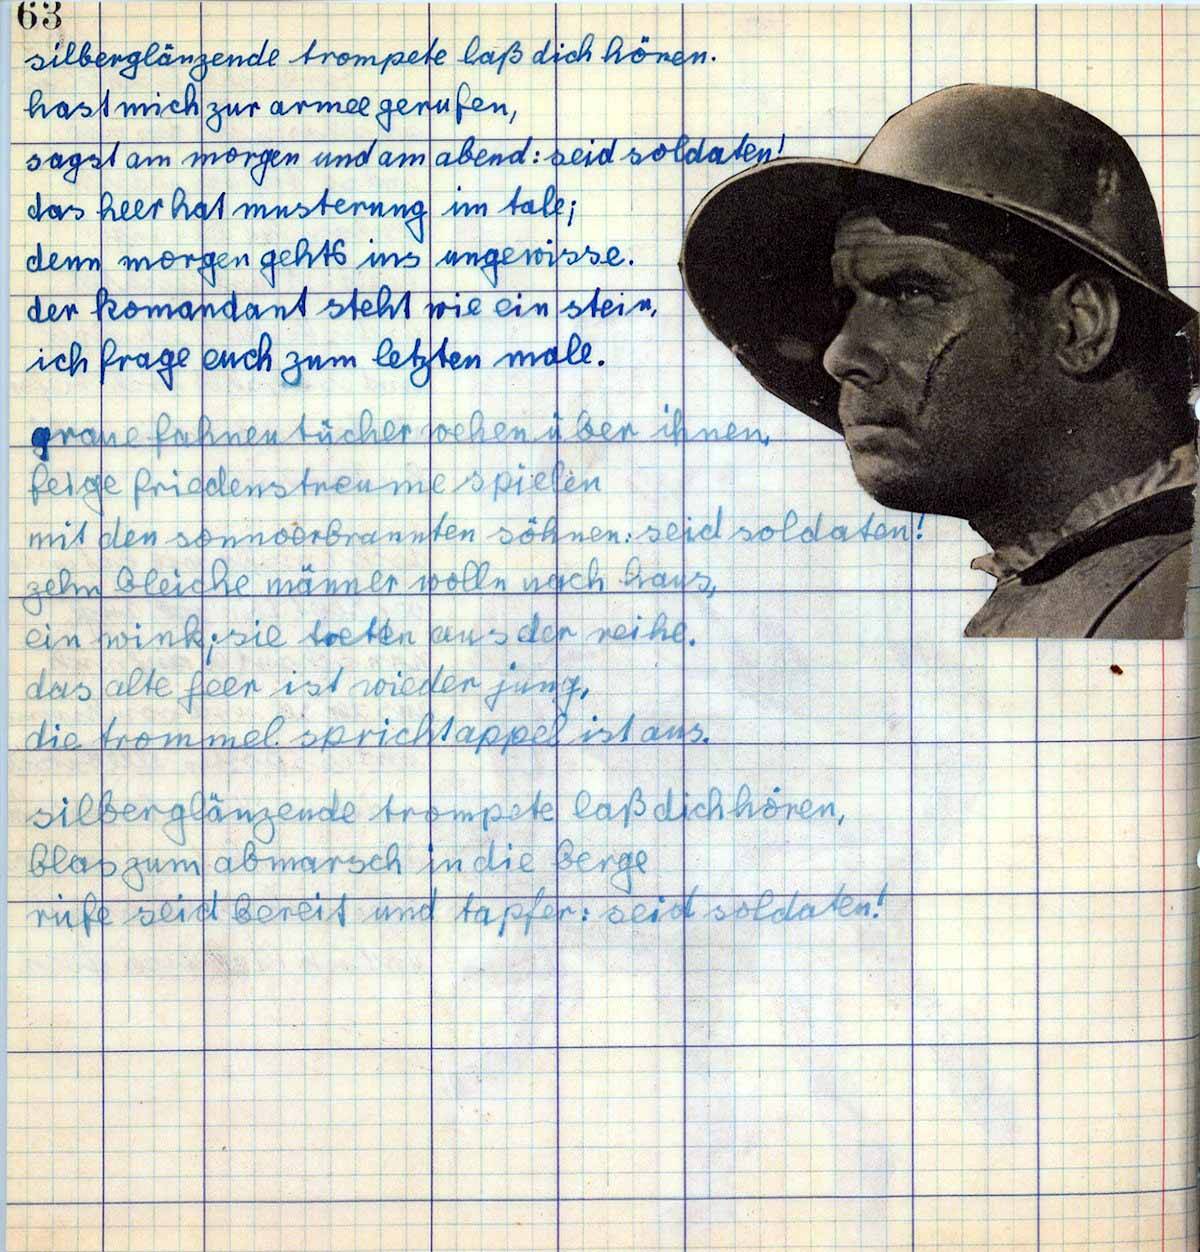 63
silberglänzende trompete laß dich hören.
hast mich zur armee gerufen,
sagst am morgen und am abend: seid soldaten!
das heer hat musterung im tale;
denn morgen gehts ins ungewisse.
der komandant steht wie ein stein,
ich frage euch zum letzten male.
graue fahnentücher wehen über ihnen,
feige friedenstreume spielen
mit den sonnverbrannten söhnen: seid soldaten!
zehn bleiche männer wolln nach haus,
ein wink; sie treten aus der reihe.
das alte heer ist wieder jung,
die trommel spricht appel ist aus.
silberglänzende trompete laß dich hören,
blas zum abmarsch in die berge
rufe seid bereit und tapfer: seid soldaten!